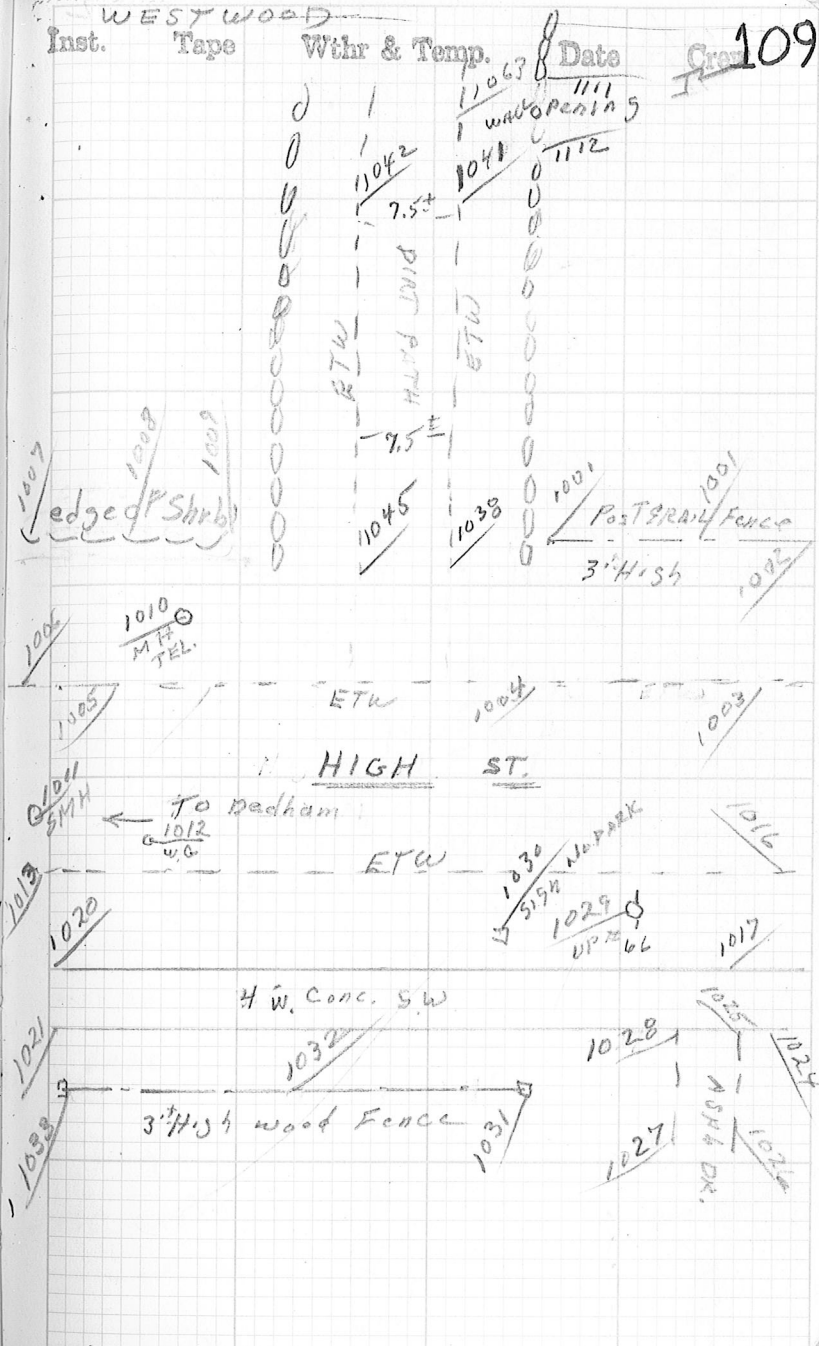 WESTWOOD
Inst. Tape Wthr & Temp. Date Crew 109
11063
1111
WALL OPENING
1112
11042
1041
7.5±
DIRT PATH
ETW
ETW
7.5±
1007
1008
1009
edge of Shrb
11045
11038
1001
1001
POST & RAIL Fence
3'± High
1002
1006
1010
MH
TEL.
ETW
1005
1004
1003
HIGH ST.
1011
SMH
← To Dedham
1012
W.G
ETW
1013
1030
SIGN NO PARK
1016
1020
1029
UP # 66
1017
4 W. Conc. S.W
1021
1032
1028
1025
1024
3'± High wood Fence
1033
1031
1027
1026
DR.